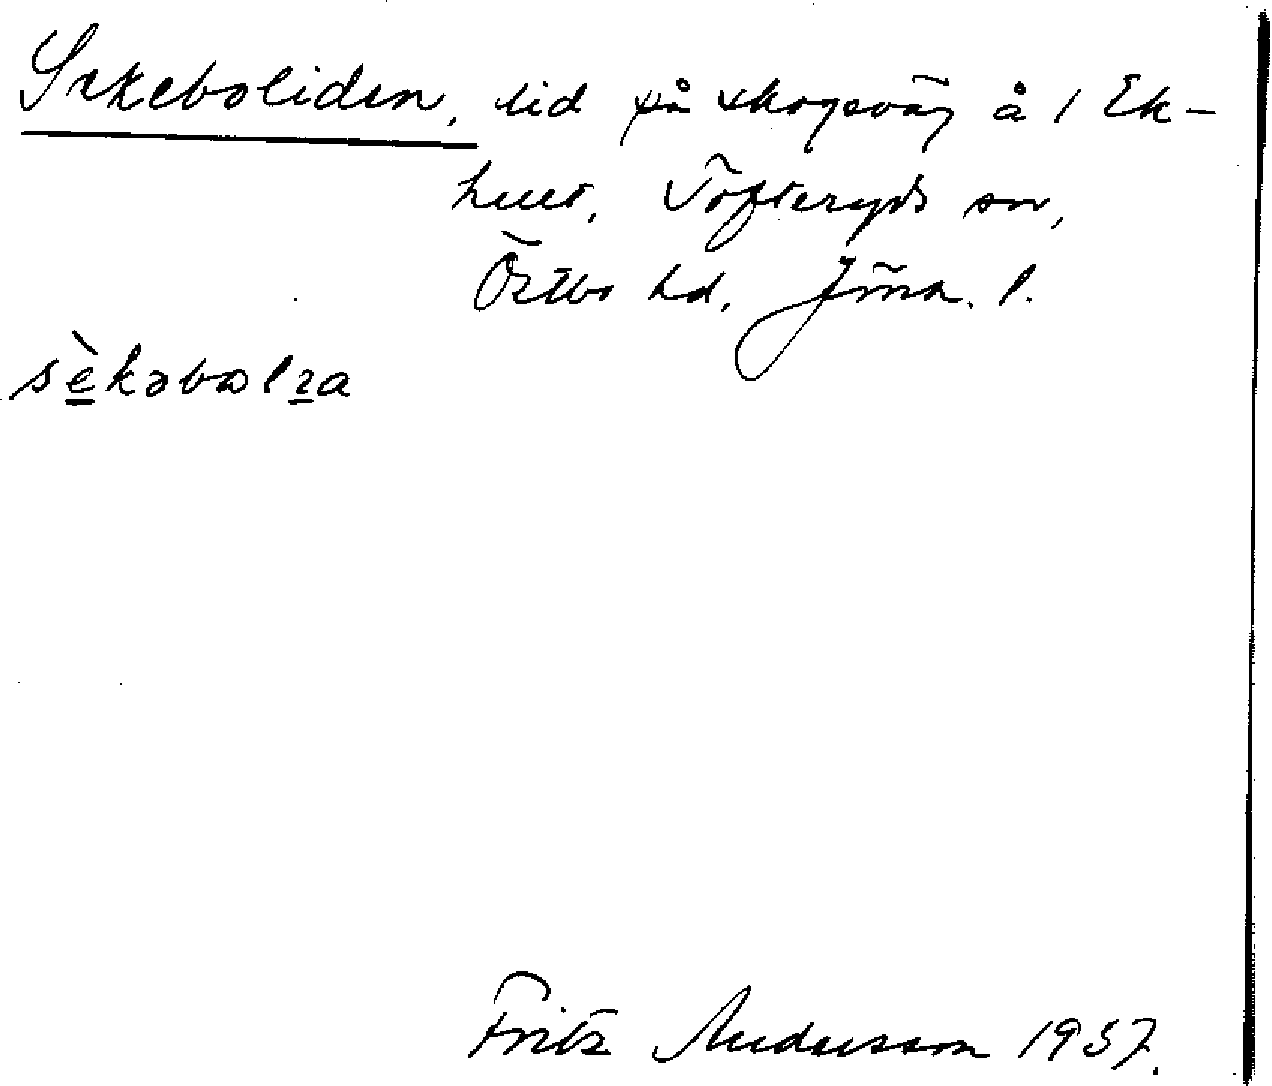 Sekeboliden, lid på skogsväg å / Ek-
hult, Tofteryds sn,
Östbo hd, Jönk. l.
Fritz Andersson 1937.